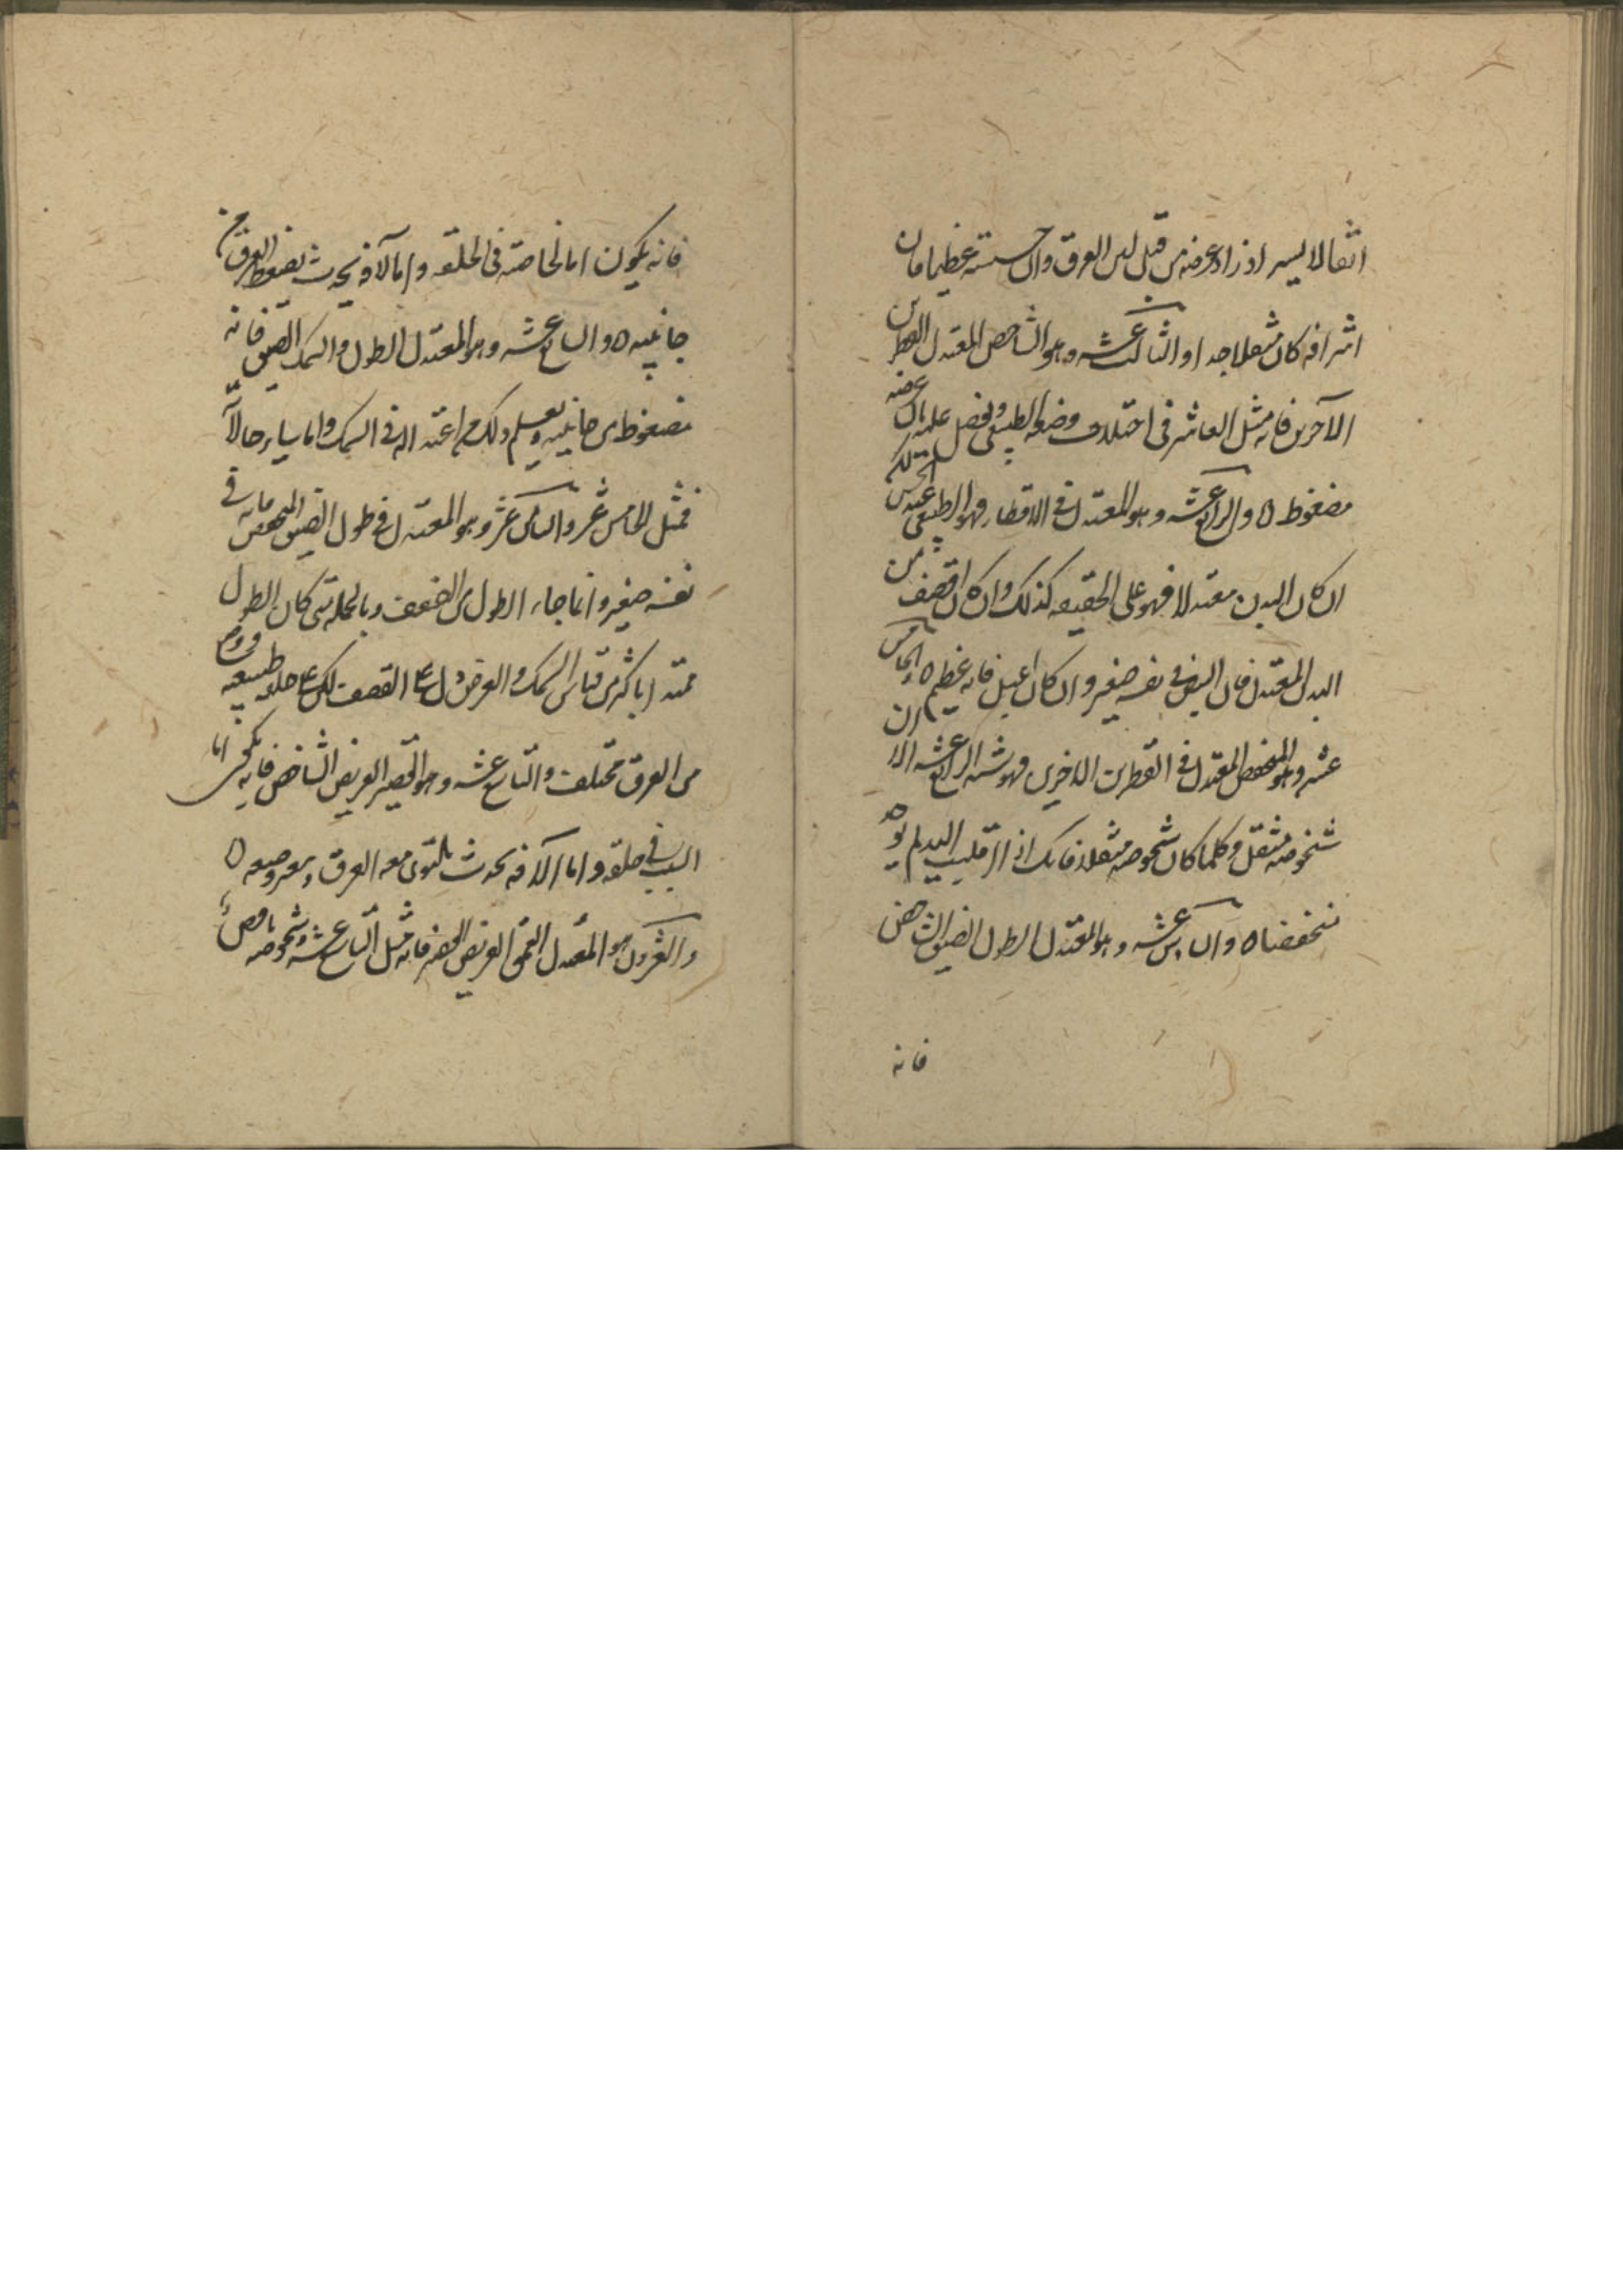 اثقالا ليسير اذ زاد عرضه من قبل لين العرق وان حسسته عظيما فان
اشرافه كان مثقلا جدا والثالث عشر وهو الشاخص المعتدل القطرين
الآخرين فانه مثل العاشر فى اختلاف وضعه الطبيعى ويفصل عليه بان عرضه
مضغوط ٥ والرابع عشر وهو المعتدل فى الاقطار فهو الطبيعى عند الحس لكنه
ان كان البدن معتدلا فهو على الحقيقه كذلك وان كان اقضف من
البدن المعتدل فان النبض فى نفسه صغير وان كان اعبل فانه عظيم ٥ الخامس
عشر وهو المنخفض المعتدل فى القطرين الاخرين فهو شبه الرابع عشر الا ان
شخوصه مثقل وكلما كان شخوصه مثقلا فانك اذا قلبت اليد لم
منخفضا ٥ والسادس عشر وهو المعتدل الطول الضيق الشاخص
فانه
فانه يكون اما لخاصته فى الخلقه واما لآفه يحدث بضغط العرق من
جانبيه ٥ والسابع عشر وهو المعتدل الطول والسمك الضيق فانه
مضغوط من جانبيه ويعلم ذلك من اعتداله فى السمك واما ساير حالاته
فمثل الخامس عشر والثامن عشر وهو المعتدل فى طول الضيق المنخفض فانه فى
نفسه صغير وانما جاء الطول من الضعف وبالجمله متى كان الطول
ممتدا باكثر من قياس السمك والعرض دل على القضف لكن على خلقه طبيعيه
من العرق مختلف والتاسع عشر وهو القصير العريض الشاخص فانه يكون اما
السبب فى خلقه واما لآفه يحدث يلتوى معه العرق وضعه ٥
والعشرون هو المعتدل العمق العريض القصير فانه مثل التاسع عشر وشخوصه ناقص